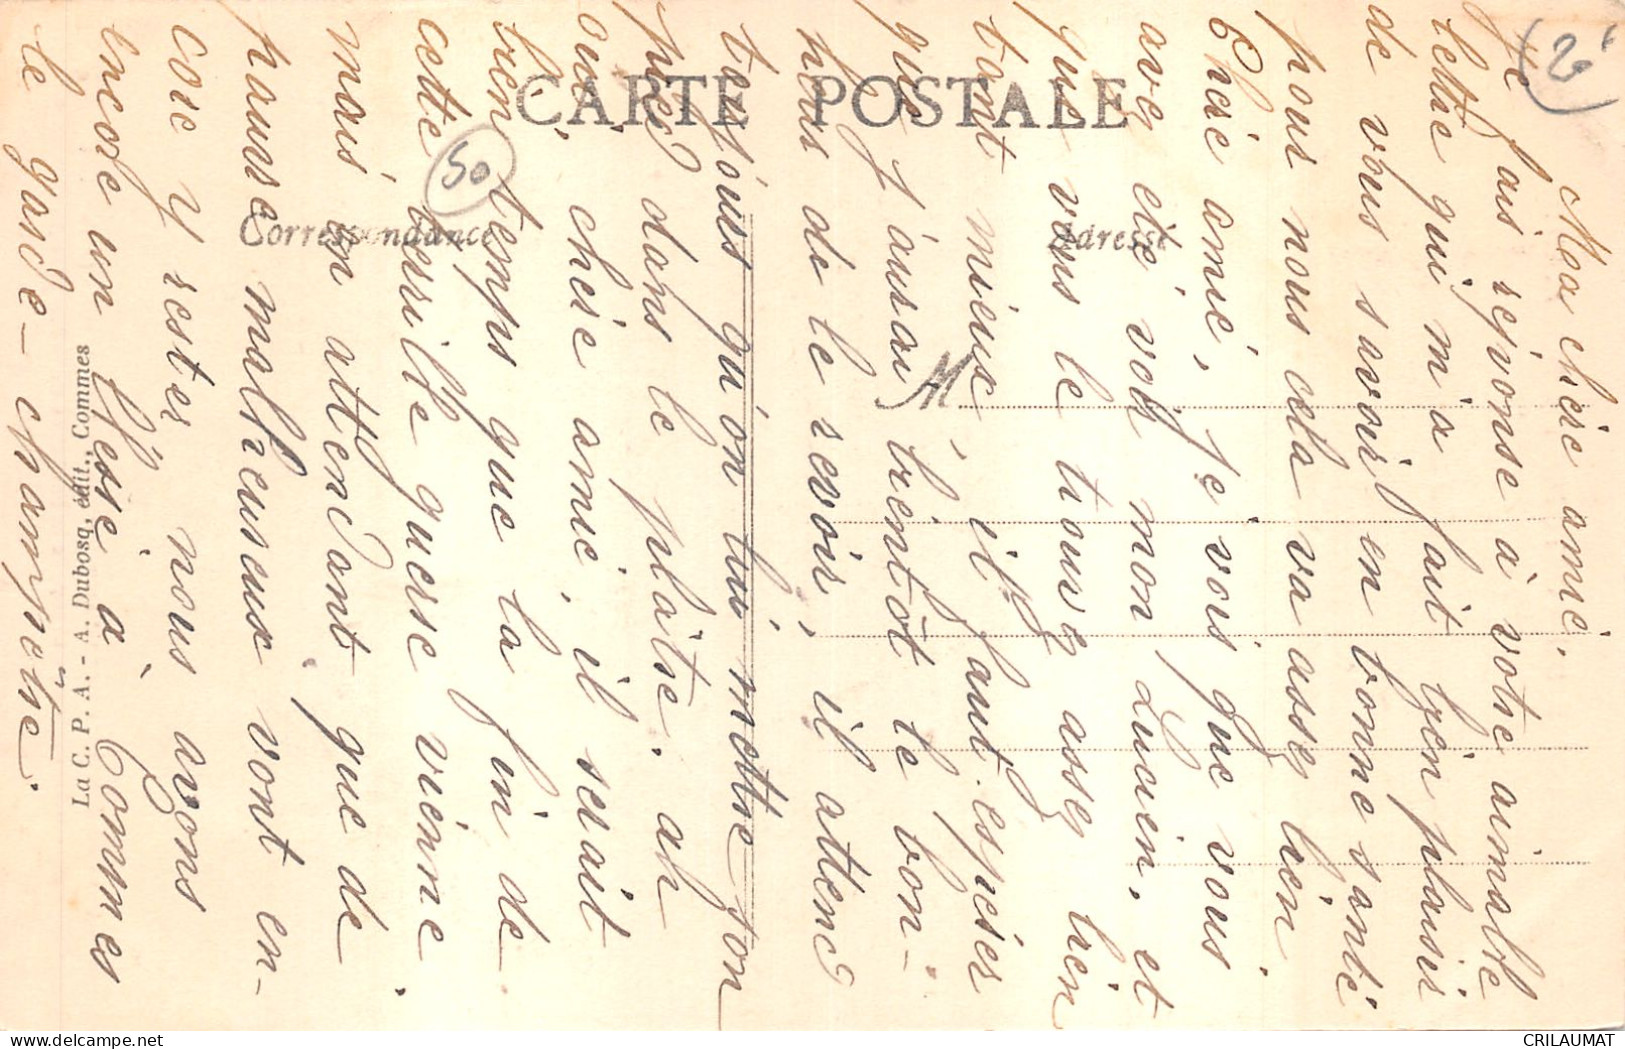 CARTE POSTALE
Correspondance
Adresse
M
50
La C. P. A. - A. Dubosq, édit., Commes
Ma chère amie,
Je fais réponse à votre aimable
lettre qui m'a fait bien plaisir
de vous savoir en bonne santé
pour nous cela va assez bien.
Chère amie, je vois que vous
avez été voir mon Lucien, et
que vous le trouvez assez bien
tant mieux, il faut espérer
que j'aurai bientôt le bon-
heur de le revoir, il attend
toujours qu'on lui mette son
pied dans le plâtre. ah
oui, chère amie, il serait
bien temps que la fin de
cette terrible guerre vienne
mais en attendant que de
pauvres malheureux vont en-
core y rester nous avons
encore un blessé à Commes
le garde-champêtre.
CRILAUMAT